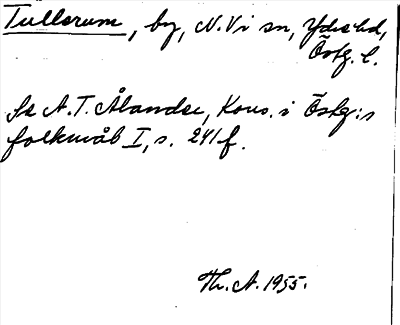 Tullerum, by, N. Vi sn, Ydre hd,
Östg. l.
Se A. T. Ålander, Kons. i Östg:s
folkmål I, s. 241 f.
Th. A. 1955.